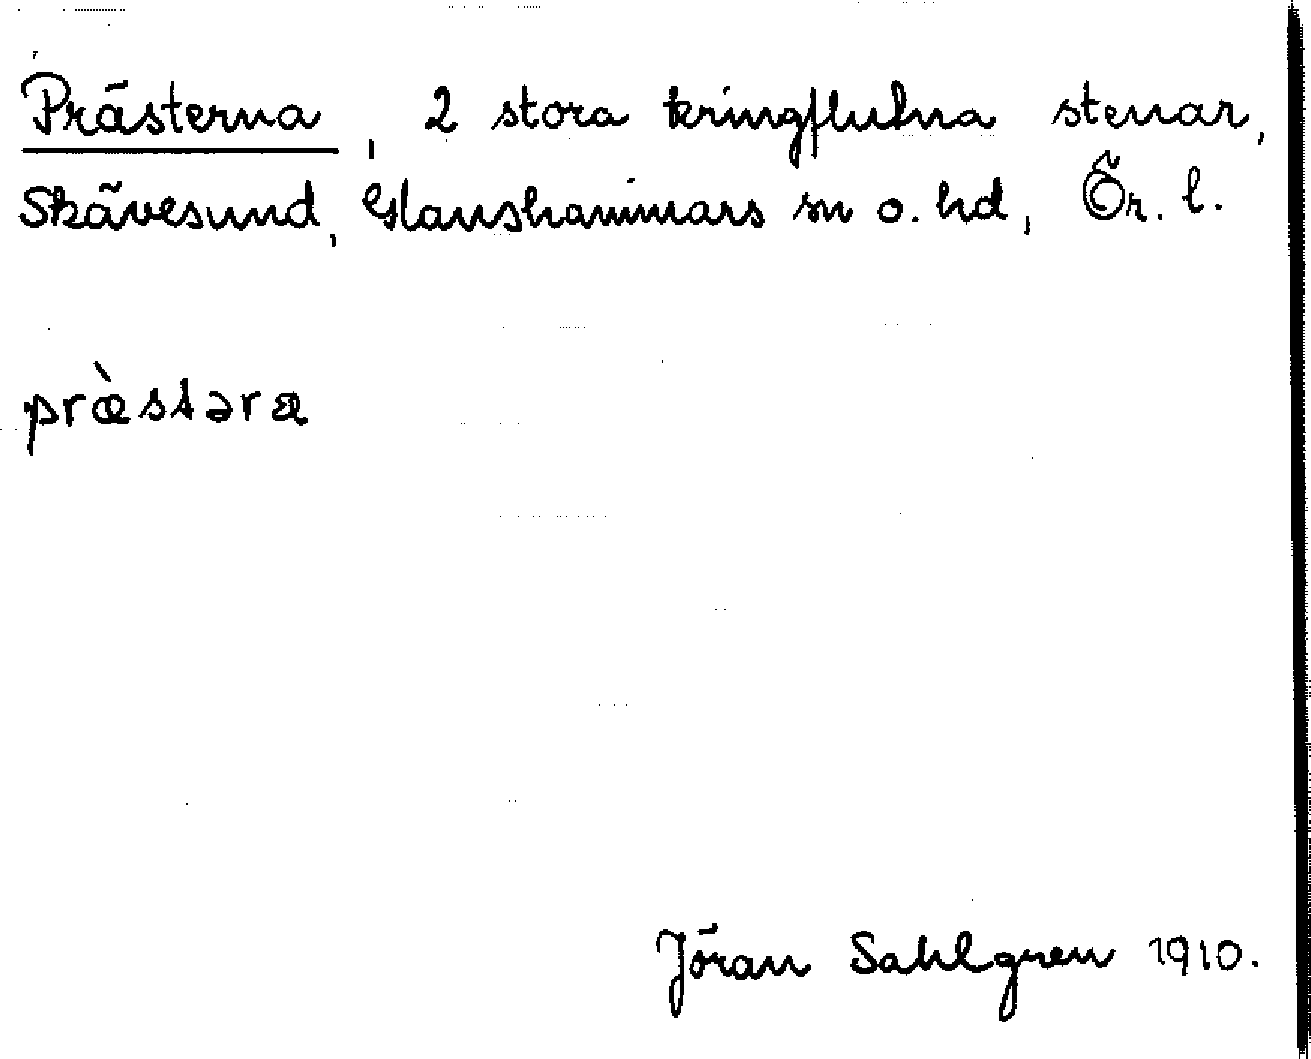 Prästerna, 2 stora kringflutna stenar,
Skävesund, Glanshammars sn o. hd, Ör. l.
prὰstəra
Jöran Sahlgren 1910.